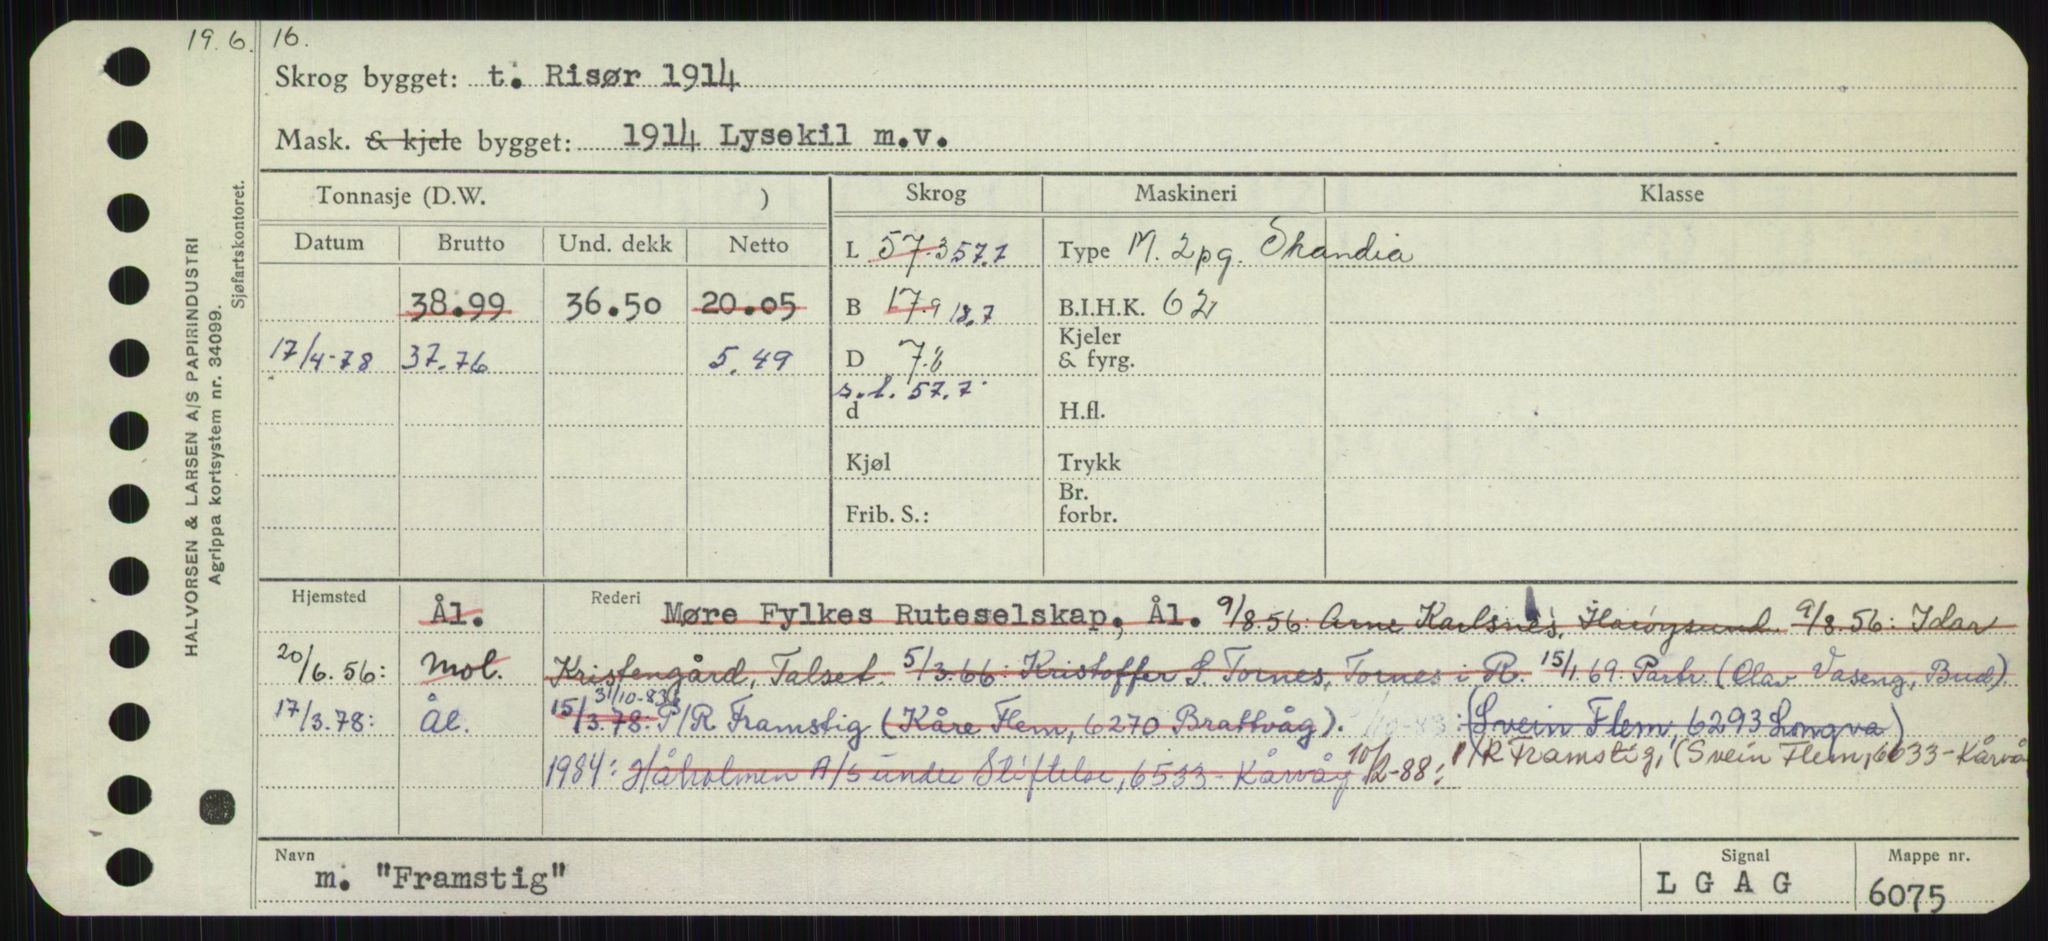 19.6.16.
Skrog bygget: t. Risør 1914
Mask. & kjele bygget: 1914 Lysekil m.v.
Tonnasje (D.W. )
Skrog
Maskineri
Klasse
Datum
Brutto
Und. dekk
Netto
38.99 36.50 20.05
17/4-78 37.76 5.49
L 57.3 57.7
B 17.9 18.7
D 7.8
r.l. 57.7
d
Kjøl
Frib. S.:
Type M. 2pg. Skandia
B.I.H.K. 62
Kjeler
& fyrg.
H.fl.
Trykk
Br.
forbr.
HALVORSEN & LARSEN A/S PAPIRINDUSTRI
Agrippa kortsystem nr. 34099.
Sjøfartskontoret.
Hjemsted Ål.
20/6.56: Mol.
17/3.78: Ål.
Rederi Møre Fylkes Ruteselskap, Ål. 9/8.56: Arne Karlsnes, Harøysund. 9/8.56: Idar
Kristengård, Talset. 5/3.66: Kristoffer S. Tornes, Tornes i R. 15/1.69. Partr. (Olav Vaseng, Bud)
31/10-83
15/3.78: P/R Framstig (Kåre Flem, 6270 Brattvåg). : (Svein Flem, 6293 Longva)
1984: Håholmen A/S under Stiftelse, 6533 - Kårvåg 10/2-88: P/R Framstig, (Svein Flem, 6533 - Kårvå
Navn
m. "Framstig"
Signal
L G A G
Mappe nr.
6075